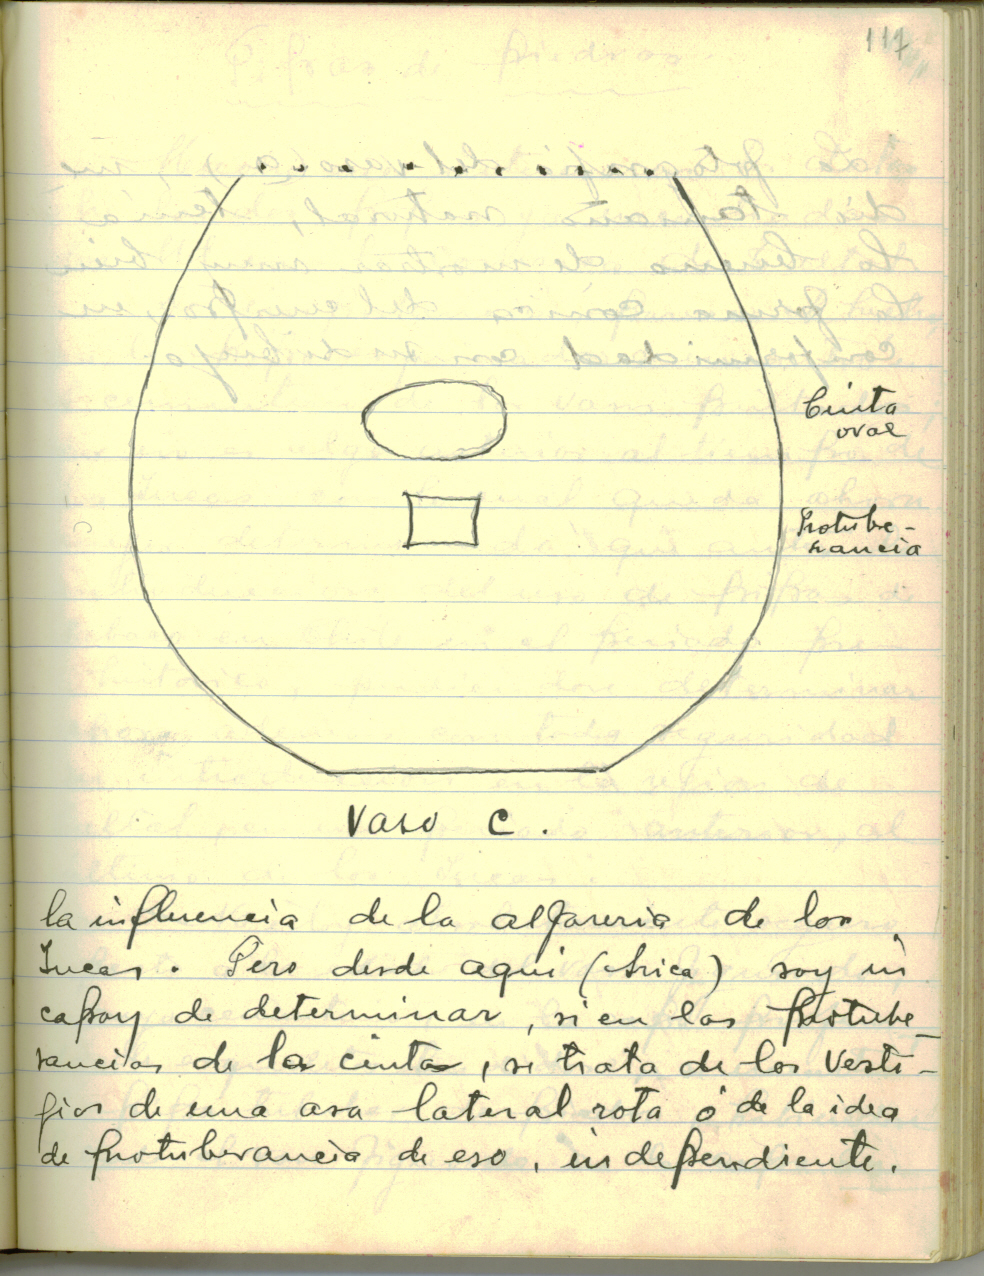 117
Cinta
oval
Protube-
rancia
Vaso C.
la influencia de la alfareria de los
Incas. Pero desde aqui (Arica) soy in
capaz de determinar, si en las protube
rancias de la cinta, si trata de los vesti-
gios de una asa lateral rota ó de la idea
de protuberancia de eso, independiente.